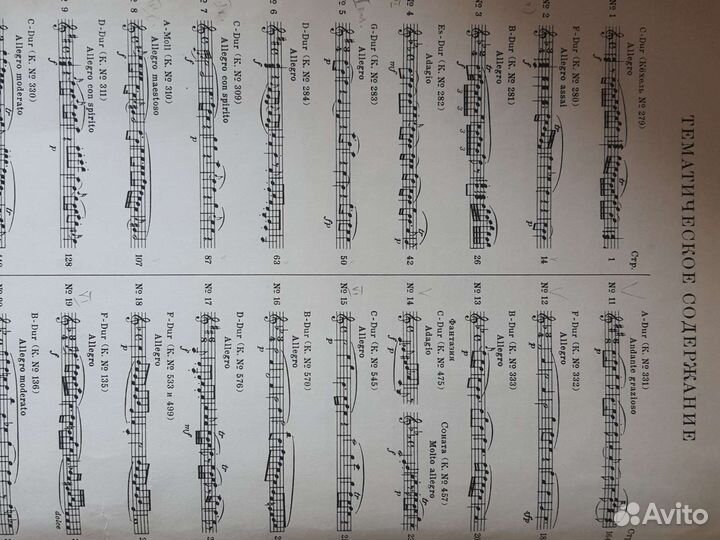 ТЕМАТИЧЕСКОЕ СОДЕРЖАНИЕ
Стр.
C-Dur (Кёхель № 279)
№ 1 Allegro
f
1
F-Dur (К. № 280)
№ 2 Allegro assai
f
p
14
B-Dur (К. № 281)
№ 3 Allegro
f
26
Es-Dur (К. № 282)
№ 4 Adagio
mf
p
42
G-Dur (К. № 283)
№ 5 Allegro
p
fp
50
D-Dur (К. № 284)
№ 6 Allegro
f
p
63
C-Dur (К. № 309)
№ 7 Allegro con spirito
f
p
87
A-Moll (К. № 310)
№ 8 Allegro maestoso
f
107
D-Dur (К. № 311)
№ 9 Allegro con spirito
f
p
128
C-Dur (К. № 330)
Allegro moderato
A-Dur (К. № 331)
№ 11 Andante grazioso
p
f
F-Dur (К. № 332)
№ 12 Allegro
p
B-Dur (К. № 333)
№ 13 Allegro
p
Фантазия
C-Dur (К. № 475)
№ 14 Adagio
f
p
Соната (К. № 457)
Molto allegro
f
p
C-Dur (К. № 545)
№ 15 Allegro
p
B-Dur (К. № 570)
№ 16 Allegro
p
D-Dur (К. № 576)
№ 17 Allegro
mf
F-Dur (К. № 533 и 499)
№ 18 Allegro
p
F-Dur (К. № 135)
№ 19 Allegro
f
dolce
B-Dur (К. № 136)
Allegro moderato
Avito